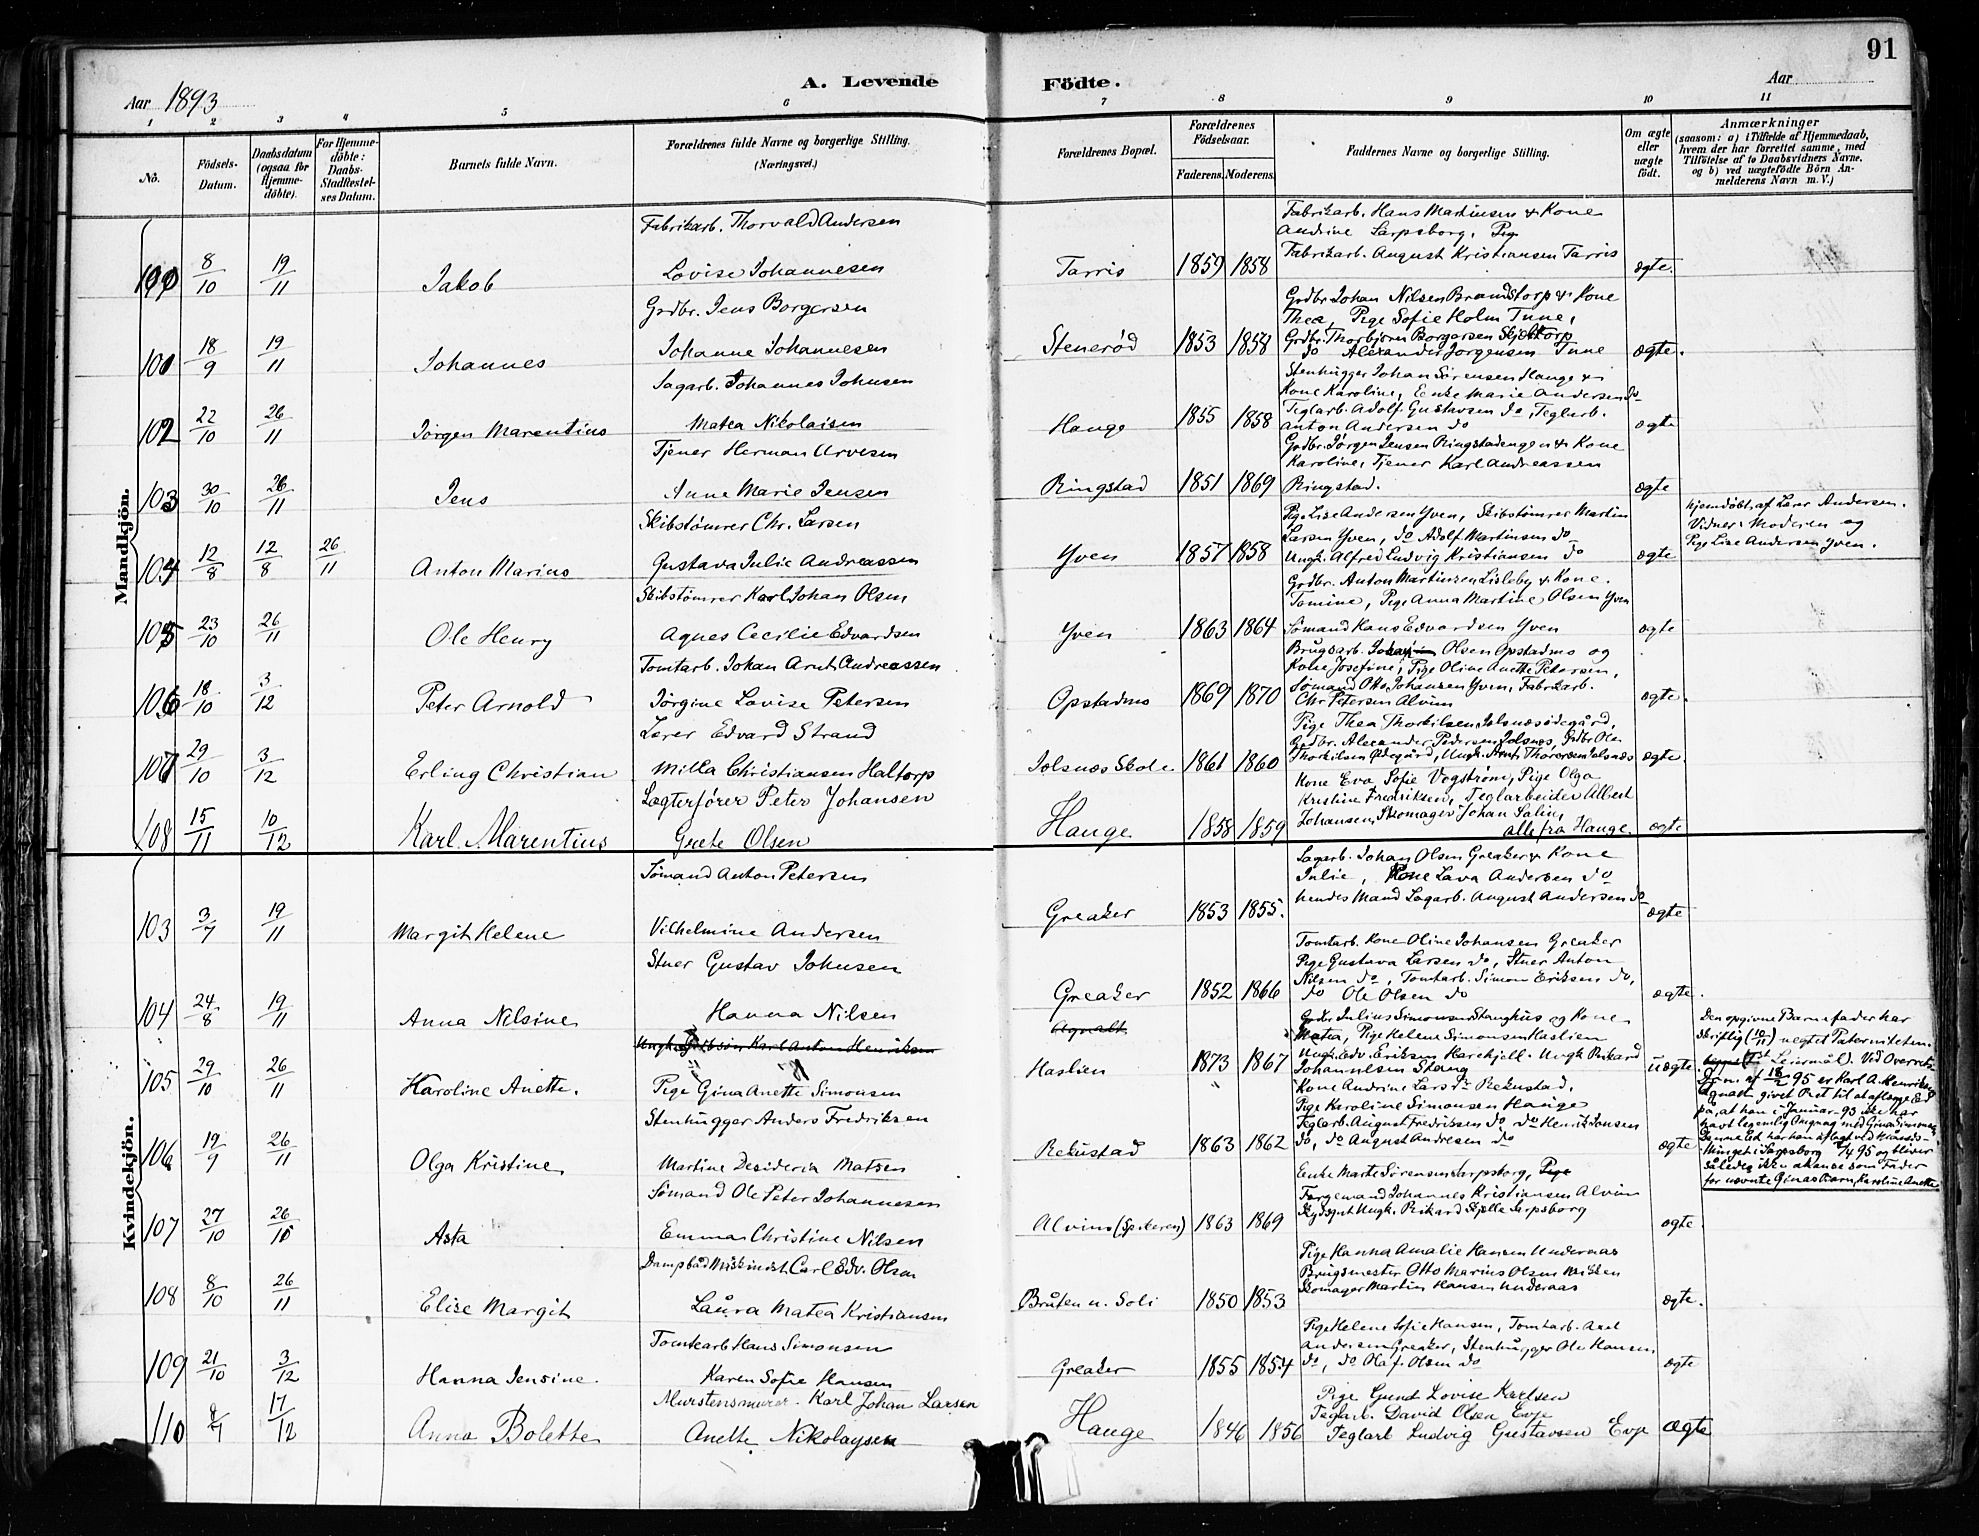 91
A. Levende Födte.
Aar 1893
Aar
1 2 3 4 5 6 7 8 9 10 11
No.
Födsels-Datum.
Daabsdatum (ogsaa for Hjemme-döbte).
For Hjemme-döbte: Daabs-Stadfæstelses Datum.
Barnets fulde Navn.
Forældrenes fulde Navne og borgerlige Stilling.
(Næringsvei.)
Forældrenes Bopæl.
Forældrenes Födselsaar.
Faderens. Moderens.
Faddernes Navne og borgerlige Stilling.
Om ægte eller uægte födt.
Anmærkninger
(saasom: a) i Tilfælde af Hjemmedaab, hvem der har forrettet samme, med Tilföielse af to Daabsvidners Navne, og b) ved uægtefödte Börn Anmelderens Navn m. V.)
Mandkjön.
Fabrikarb. Thorvald Andersen
Fabrikarb. Hans Martinsen & Kone
Andrine Sarpsborg, Pige
Fabrikarb. August Kristiansen Tarris
8/10 19/11 Jakob Lovise Johannesen Tarris 1859 1858 ægte.
Grdbr. Jens Borgersen
Grdbr. Johan Nilsen Brandstorp & Kone
Thea, Pige Sofie Holm Tune,
Grdbr. Thorbjørn Borgersen Skjeltorp
do Alexander Jørgensen Tune
18/9 19/11 Johannes Johanne Johannesen Stenerød 1853 1858 ægte.
Sagarb. Johannes Johnsen
Stenhugger Johan Sørensen Hauge &
Kone Karoline, Enke Marie Andersen do
Teglarb. Adolf Gustavsen do, Teglarb.
Anton Andersen do
102 22/10 26/11 Jørgen Marentius Matea Nikolaisen Hauge 1855 1858 ægte
Tjener Herman Arvesen
Grdbr. Jørgen Jensen Ringstadengen & Kone
Karoline, Tjener Karl Andreassen
Ringstad.
103 30/10 26/11 Jens Anne Marie Jensen Ringstad 1851 1869 ægte
Skibstømrer Chr. Larsen
Pige Lise Andersen Yven, Skibstømrer Martin
Larsen Yven, do Adolf Martinsen do
Ungk. Alfred Ludvig Kristiansen do
104 12/8 12/8 26/11 Anton Marius Gustava Julie Andreassen Yven 1857 1858 ægte
Hjemdøbt af Lærer Andersen.
Vidner: Moderen og
Pige Lise Andersen Yven.
Skibstømrer Karl Johan Olsen
Grdbr. Anton Martinsen Lisleby & Kone
Tomine, Pige Anna Martine Olsen Yven
Sømand Hans Edvardsen Yven
105 23/10 26/11 Ole Henry Agnes Cecilie Edvardsen Yven 1863 1864 ægte
Tomtarb. Johan Arnt Andreassen
Brugsarb. Olsen Opstadmo og
Kone Josefine, Pige Oline Anette Petersen,
Sømand Otto Johansen Yven, Fabrikarb.
Chr. Petersen Alvim
106 18/10 3/12 Peter Arnold Jørgine Lovise Petersen Opstadmo 1869 1870 ægte.
Lærer Edvard Strand
Pige Thea Thorkilsen Jolsnæsødegård,
Grdbr. Alexander Pedersen Jolsnæs, Grdbr. Ole
Thorkilsen Ødegård, Ungk. Arnt Thoresen Jolsnæs
107 29/10 3/12 Erling Christian Milla Christiansen Haltorp Jolsnæs Skole 1861 1860 ægte.
Lægterfører Peter Johansen
Kone Eva Sofie Vogstrøm, Pige Olga
Kristine Fredriksen, Teglarbeider Albert
Johansen, Skomager Johan Salin,
alle fra Hauge.
108 15/11 10/12 Karl Marentius Grete Olsen Hauge 1858 1859 ægte
Kvindekjön.
Sømand Anton Petersen
Sagarb. Johan Olsen Greaker & Kone
Julie, Kone Lava Andersen do
hendes Mand Sagarb. August Andersen do
103 3/7 19/11 Margit Helene Vilhelmine Andersen Greaker 1853 1855. ægte
Stuer Gustav Johnsen
Tomtarb. Kone Oline Johansen Greaker
Pige Gustava Larsen do, Stuer Anton
Nilsen do, Tomtarb. Simon Eriksen do,
do Ole Olsen do
104 24/8 19/11 Anna Nilsine Hanna Nilsen Greaker 1852 1866 ægte.
Karl Anton Henriksen
Agnalt.
Grdbr. Julius Simonsen Stanghus og Kone
Matea, Pige Helene Simonsen Haslien
Ungk. Edv. Eriksen Harekjell. Ungk. Rikard
Johannesen Stang
105 29/10 26/11 Karoline Anette. Pige Gina Anette Simonsen Haslien 1873 1867 uægte
Den opgivne Barnefader har
skriftlig (10/11) negtet Paterniteten.
Leiermål). Ved Overrets-
af 18/2 95 er Karl A. Henriksen
Agnalt givet Ret til at aflægge Ed
på, at han i Januar 93 ikke har
havt legemlig Omgang med Gina Simonsen.
Denne Ed har han aflagt ved
tinget i Sarpsborg 2/4 95 og bliver
således ikke at anse som Fader
for nævnte Ginas Barn, Karoline Anette
Stenhugger Anders Fredriksen
Kone Andrine Lars dr Rekustad,
Pige Karoline Simonsen Hauge
Teglarb. August Fredriksen do, do Henrik Jonsen
do, do August Andresen do
106 19/9 26/11 Olga Kristine Martine Desideria Matsen Rekustad 1863 1862 ægte
Sømand Ole Peter Johannesen
Enke Marte Sørensen Sarpsborg, Pige
Færgemand Johannes Kristiansen Alvim
Skydsgut Ungk. Rikard Skjelle Sarpsborg
107 27/10 26/10 Asta Emma Christine Nilsen Alvim (Spikeren) 1863 1869 ægte
Dampbåd Maskinist Carl Edv. Olsen
Pige Hanna Amalie Hansen Underaas
Brugsmester Otto Marius Olsen
Skomager Martin Hansen Underaas
108 8/10 26/11 Elise Margit Laura Matea Kristiansen Bråten u. Soli 1850 1853 ægte.
Tomtearb Hans Simonsen
Pige Helene Sofie Hansen, Tomtarb. Axel
Andersen Greaker, Stenhugger Ole Hansen
do, do Olaf Olsen do
109 21/10 3/12 Hanna Jensine. Karen Sofie Hansen Greaker 1855 1854 ægte
Murstensmurer Karl Johan Larsen
Pige Gunel Lovise Karlsen
Teglarb. David Olsen Evje
Teglarb Ludvig Gustavsen Evje
110 17/12 Anna Bolette Anette Nikolaysen Hauge 1846 1856 ægte